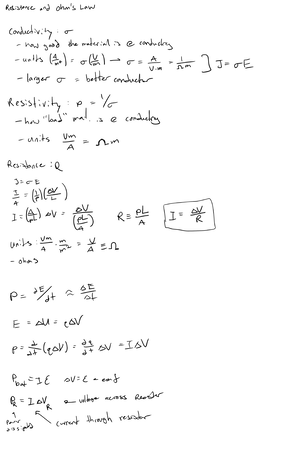 Resistance and ohm's Law
Conductivity : σ
- how good the material is @ conducting
- units (A/m²) = σ(V/m) → σ = A/V·m = 1/Ωm ] J = σE
- larger σ = better conductor
Resistivity : ρ = 1/σ
- how "bad" mat. is @ conducting
- units Vm/A = Ωm
Resistance : R
J = σE
I/A = (1/ρ)(ΔV/L)
I = (A/ρL) ΔV = ΔV/(ρL/A) R ≡ ρL/A I = ΔV/R
units : Vm/A · m/m² = V/A ≡ Ω
- ohms
P = dE/dt ≈ ΔE/Δt
E = ΔU = qΔV
P = d/dt (qΔV) = dq/dt ΔV = IΔV
P_bat = Iε ΔV = ε = emf
P_R = I ΔV_R ← voltage across Resistor
Power dissipated
current through resistor